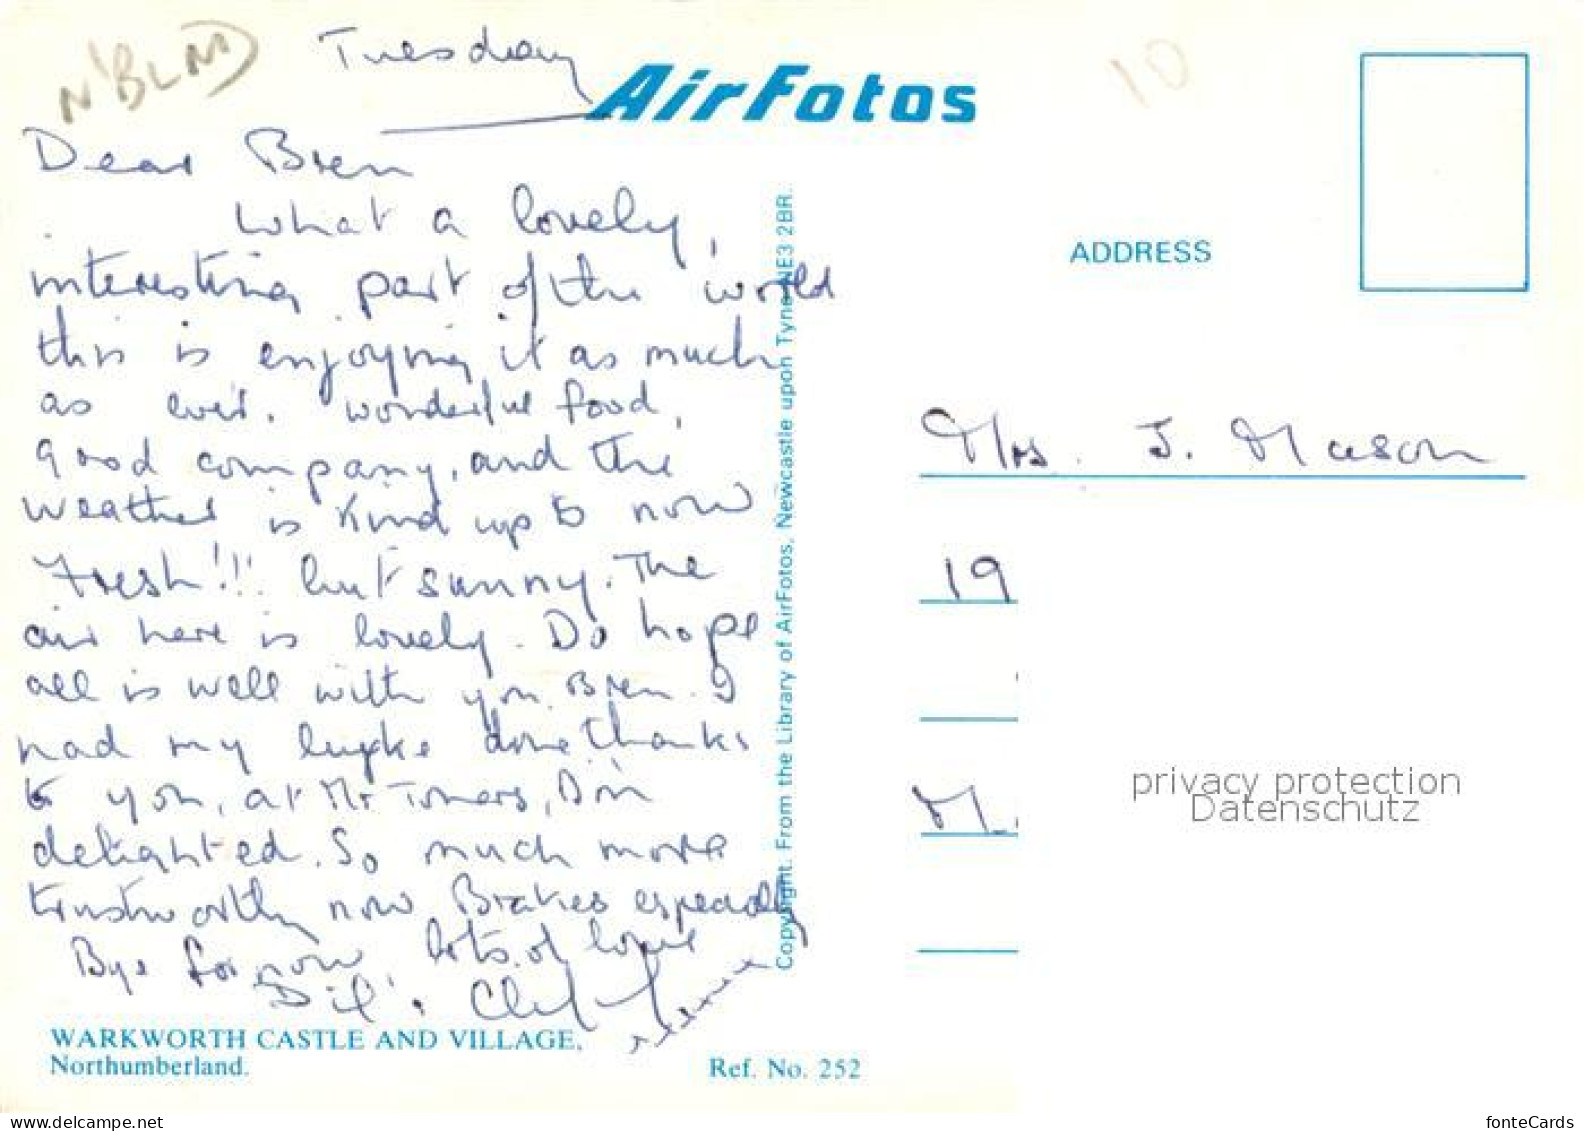 N'BLND
Tuesday
AirFotos
10
Dear Bren
What a lovely,
interesting part of the world
this is enjoying it as much
as ever. Wonderful food,
good company, and the
weather is kind up to now
Fresh!!! but sunny. The
air here is lovely. Do hope
all is well with you Bren. I
had my done thanks
to you, at Mr Towers, I'm
delighted. So much more
trustworthy now Brakes especially
Bye for now lots of love
Dil &
WARKWORTH CASTLE AND VILLAGE,
Northumberland.
Ref. No. 252
Copyright. From the Library of AirFotos, Newcastle upon Tyne NE3 2BR.
ADDRESS
Mrs. J. Mason
19
M.
privacy protection
Datenschutz
www.delcampe.net
fonteCards